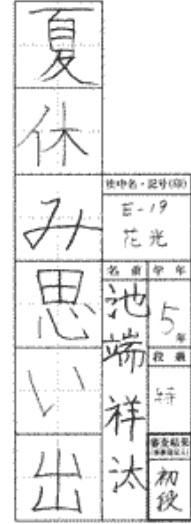 夏休み思い出
社中名・記号(印)
E-19
花光
名前
池端祥汰
学年
5年
段級
特
審査結果
初段